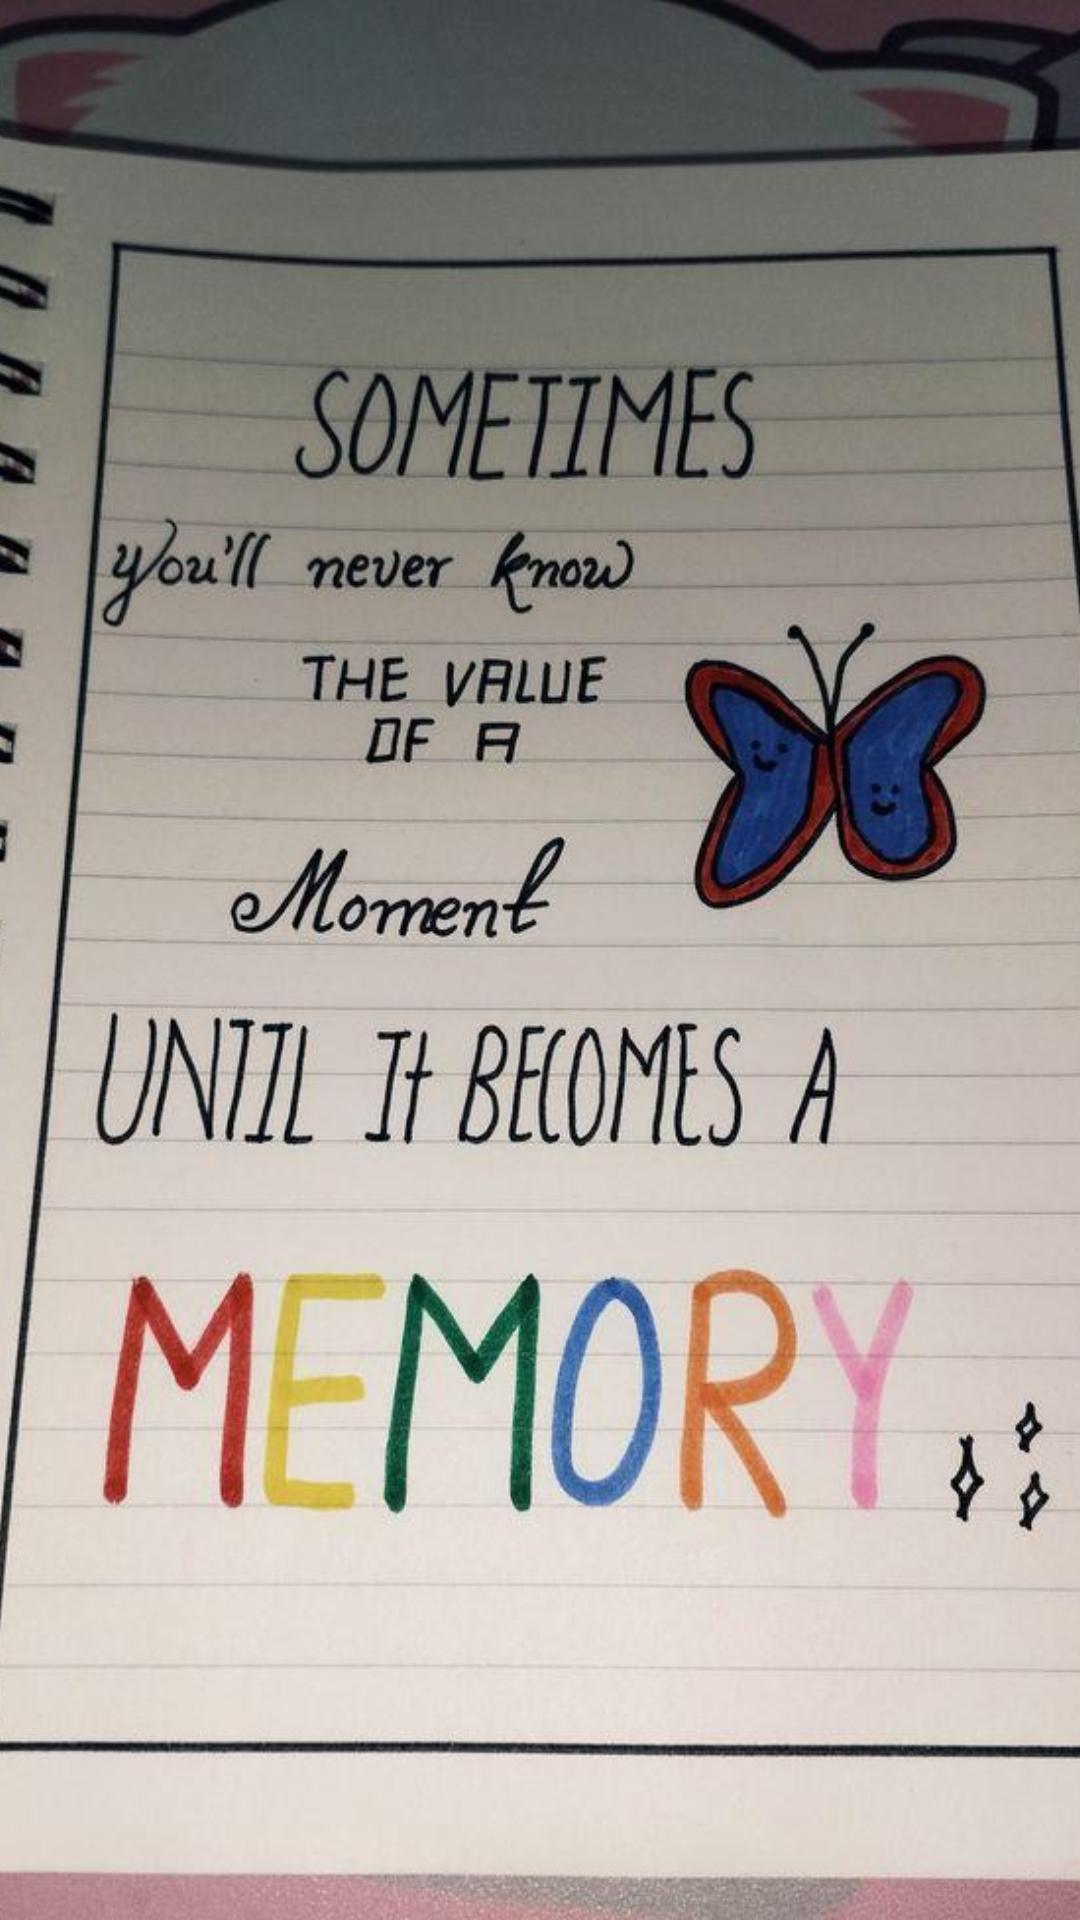 SOMETIMES
you'll never know
THE VALUE
OF A
Moment
UNTIL It BECOMES A
MEMORY